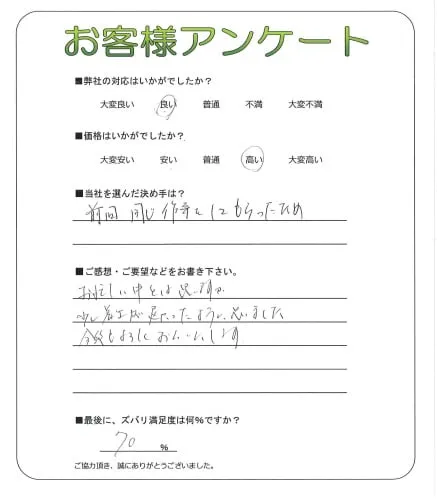 お客様アンケート
■弊社の対応はいかがでしたか？
大変良い 良い 普通 不満 大変不満
■価格はいかがでしたか？
大変安い 安い 普通 高い 大変高い
■当社を選んだ決め手は？
前回同じ作業をしてもらったため
■ご感想・ご要望などをお書き下さい。
お忙しい中とは思いますが
少し着工が遅かったように思いました
今後もよろしくおねがいします
■最後に、ズバリ満足度は何％ですか？
70 %
ご協力頂き、誠にありがとうございました。